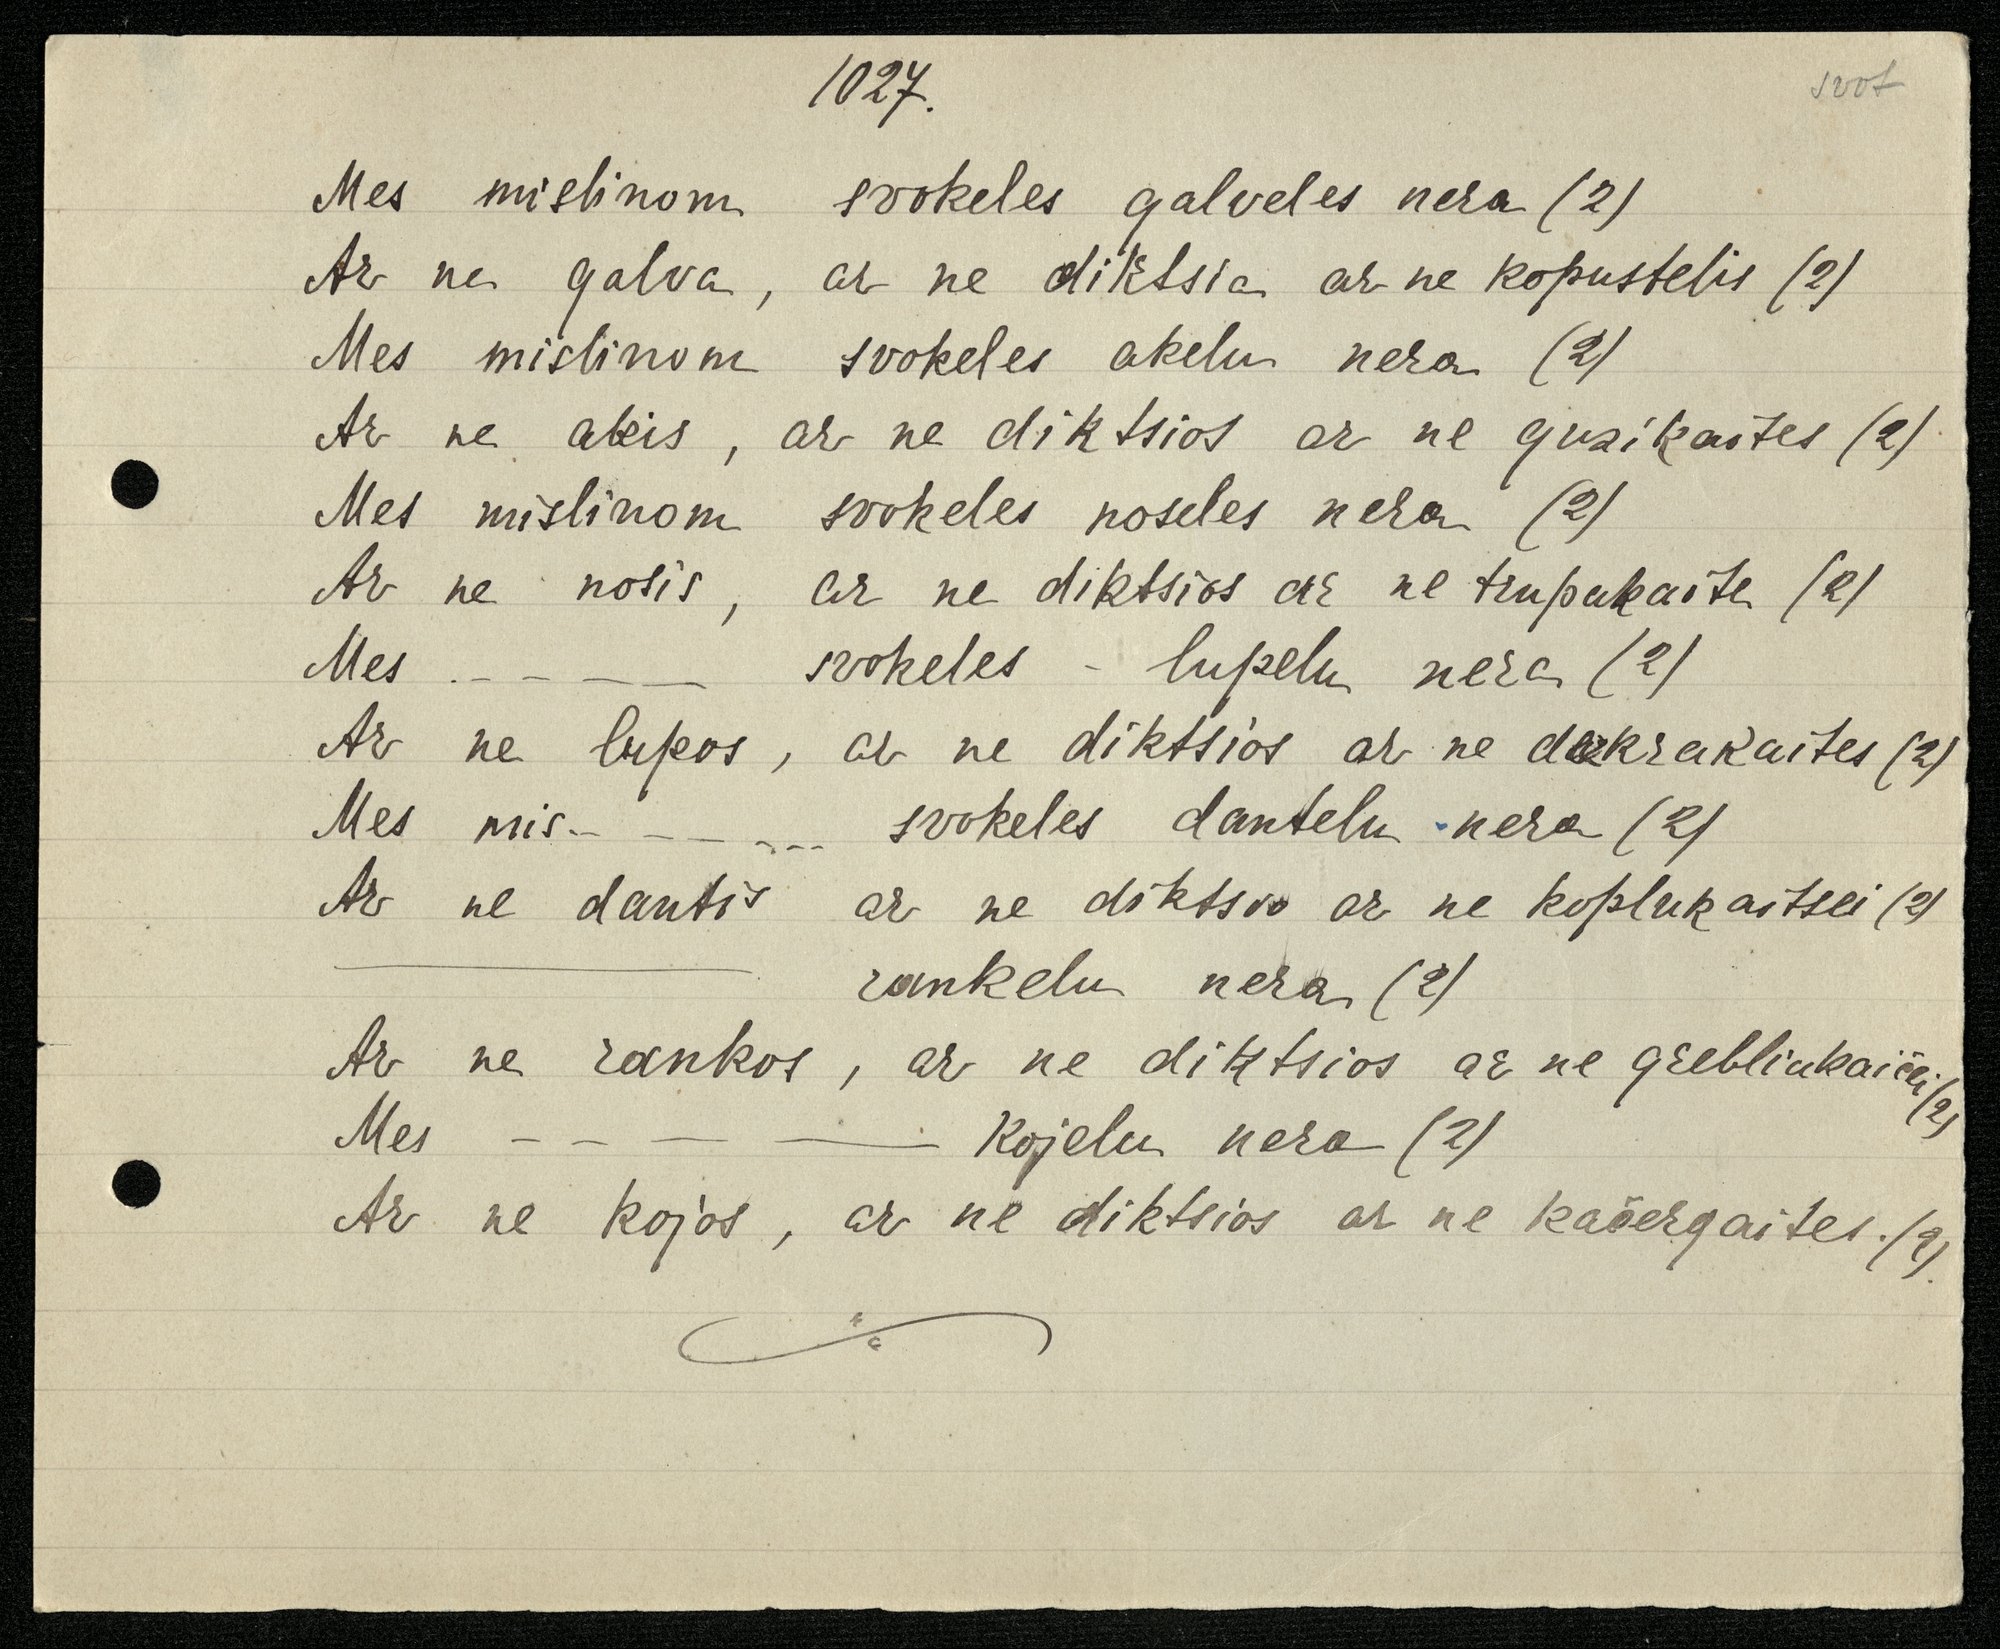 1027.
svot
Mes mislinom svokeles galveles nera (2)
Ar ne galva, ar ne diktsia ar ne kopustelis (2)
Mes mislinom svokeles akelu nera (2)
Ar ne akis, ar ne diktsios ar ne guzikaites (2)
Mes mislinom svokeles noseles nera (2)
Ar ne nosis, ar ne diktsios ar ne trupukaite (2)
Mes - - - - svokeles - lupelu nera (2)
Ar ne lupos, ar ne diktsios ar ne krakaites (2)
Mes mis- - - - svokeles dantelu nera (2)
Ar ne dantis ar ne diktsio ar ne koplukaitsei (2)
rankelu nera (2)
Ar ne rankos, ar ne diktsios ar ne grebliukaičei (2)
Mes - - - - kojelu nera (2)
Ar ne kojos, ar ne diktsios ar ne kačergaites. (2).